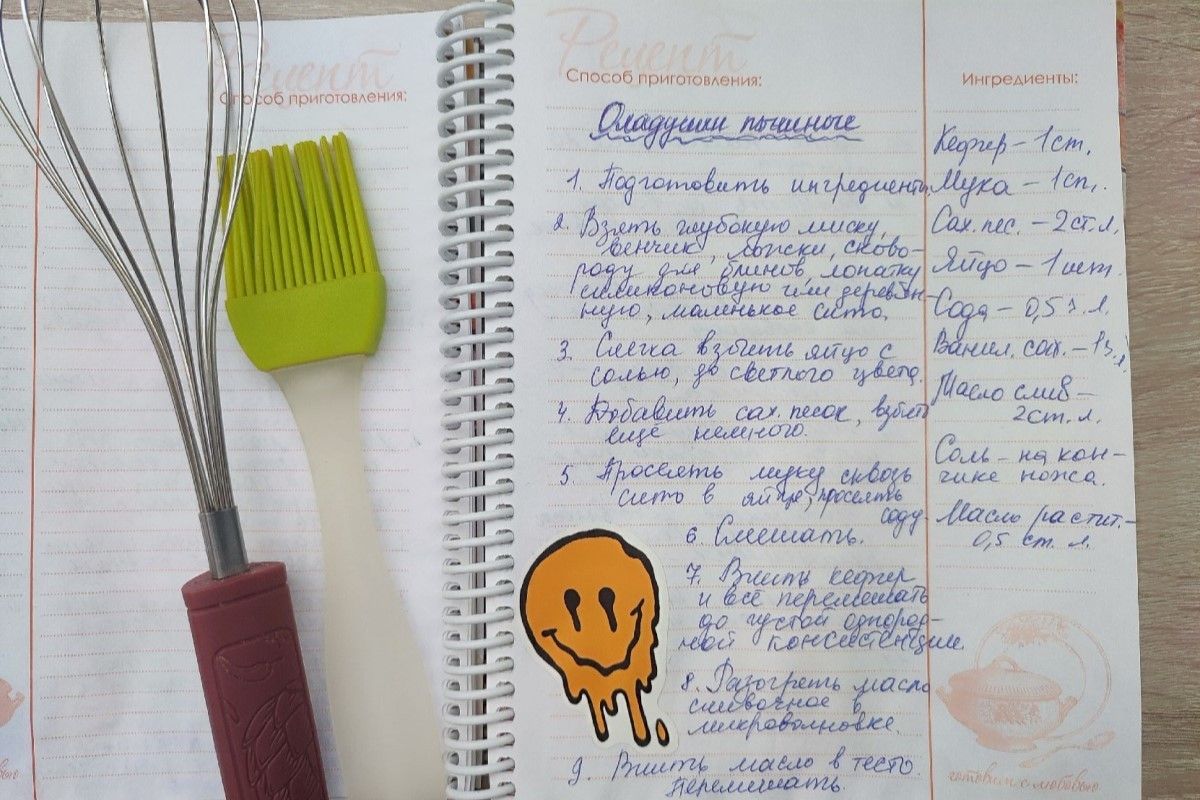 Рецепт
Способ приготовления:
Рецепт
Способ приготовления:
Оладушки пышные
1. Подготовить ингредиенты.
2. Взять глубокую миску,
венчик, ложки, сково-
роду для блинов, лопатку
силиконовую или деревян-
ную, маленькое сито.
3. Слегка взбить яйцо с
солью, до светлого цвета.
4. Добавить сах. песок, взбить
ещё немного.
5. Просеять муку сквозь
сито в яйцо, просеять
соду.
6. Смешать.
7. Влить кефир
и всё перемешать
до густой однород-
ной консистенции.
8. Разогреть масло
сливочное в
микроволновке.
9. Влить масло в тесто.
Перемешать.
Ингредиенты:
Кефир – 1 ст.
Мука – 1 ст.
Сах. пес. – 2 ст. л.
Яйцо – 1 шт.
Сода – 0,5 ч. л.
Ванил. сах. – 1 ч. л.
Масло слив –
2 ст. л.
Соль – на кон-
чике ножа.
Масло растит. –
0,5 ст. л.
готовим с любовью